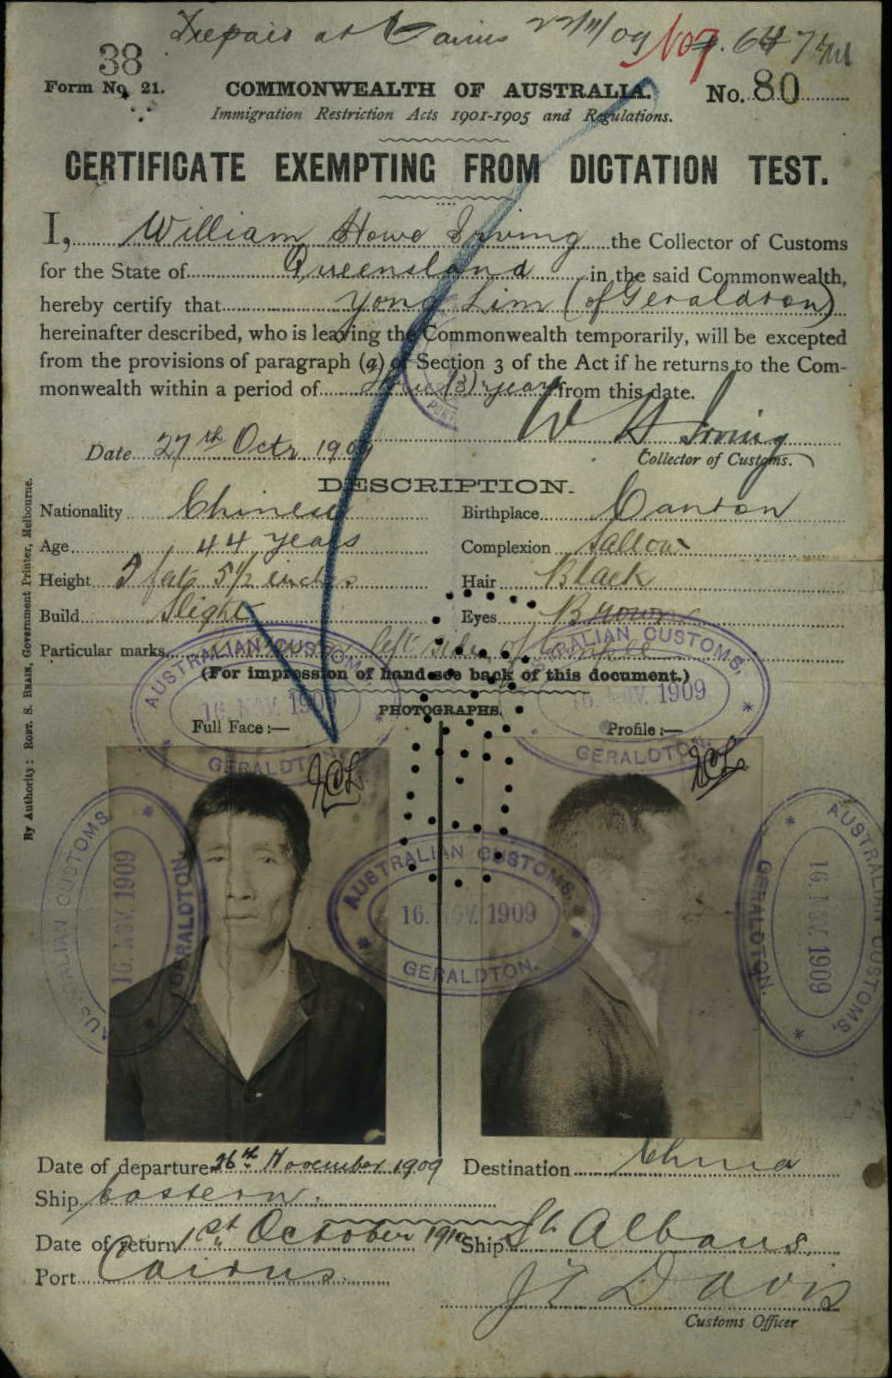 at Cairns 22/11/09 No. 647
38
Form No. 21. COMMONWEALTH OF AUSTRALIA. No. 80
Immigration Restriction Acts 1901-1905 and Regulations.
CERTIFICATE EXEMPTING FROM DICTATION TEST.
I, William Howe Irving the Collector of Customs
for the State of Queensland in the said Commonwealth,
hereby certify that Yong Lim (of Geraldton)
hereinafter described, who is leaving the Commonwealth temporarily, will be excepted
from the provisions of paragraph (a) of Section 3 of the Act if he returns to the Com-
monwealth within a period of (3) years from this date.
W H Irving
Date 27th Octr 1909
Collector of Customs.
DESCRIPTION.
Nationality Chinese Birthplace Canton
Age 44 years Complexion Sallow
Height 5 feet 5½ inches Hair Black
Build Slight Eyes Brown
Particular marks left side of
(For impression of hand see back of this document.)
PHOTOGRAPHS.
Full Face:— Profile:—
AUSTRALIAN CUSTOMS, 16. NOV. 1909 GERALDTON.
AUSTRALIAN CUSTOMS, 16. NOV. 1909 GERALDTON.
AUSTRALIAN CUSTOMS, 16. NOV. 1909 GERALDTON.
AUSTRALIAN CUSTOMS, 16. NOV. 1909 GERALDTON.
AUSTRALIAN CUSTOMS, 16. NOV. 1909 GERALDTON.
Date of departure 26th November 1909 Destination China
Ship Eastern
Date of return 1st October 1910 Ship St Albans
Port Cairns
J T Davis
Customs Officer
By Authority: ROBT. S. BRAIN, Government Printer, Melbourne.